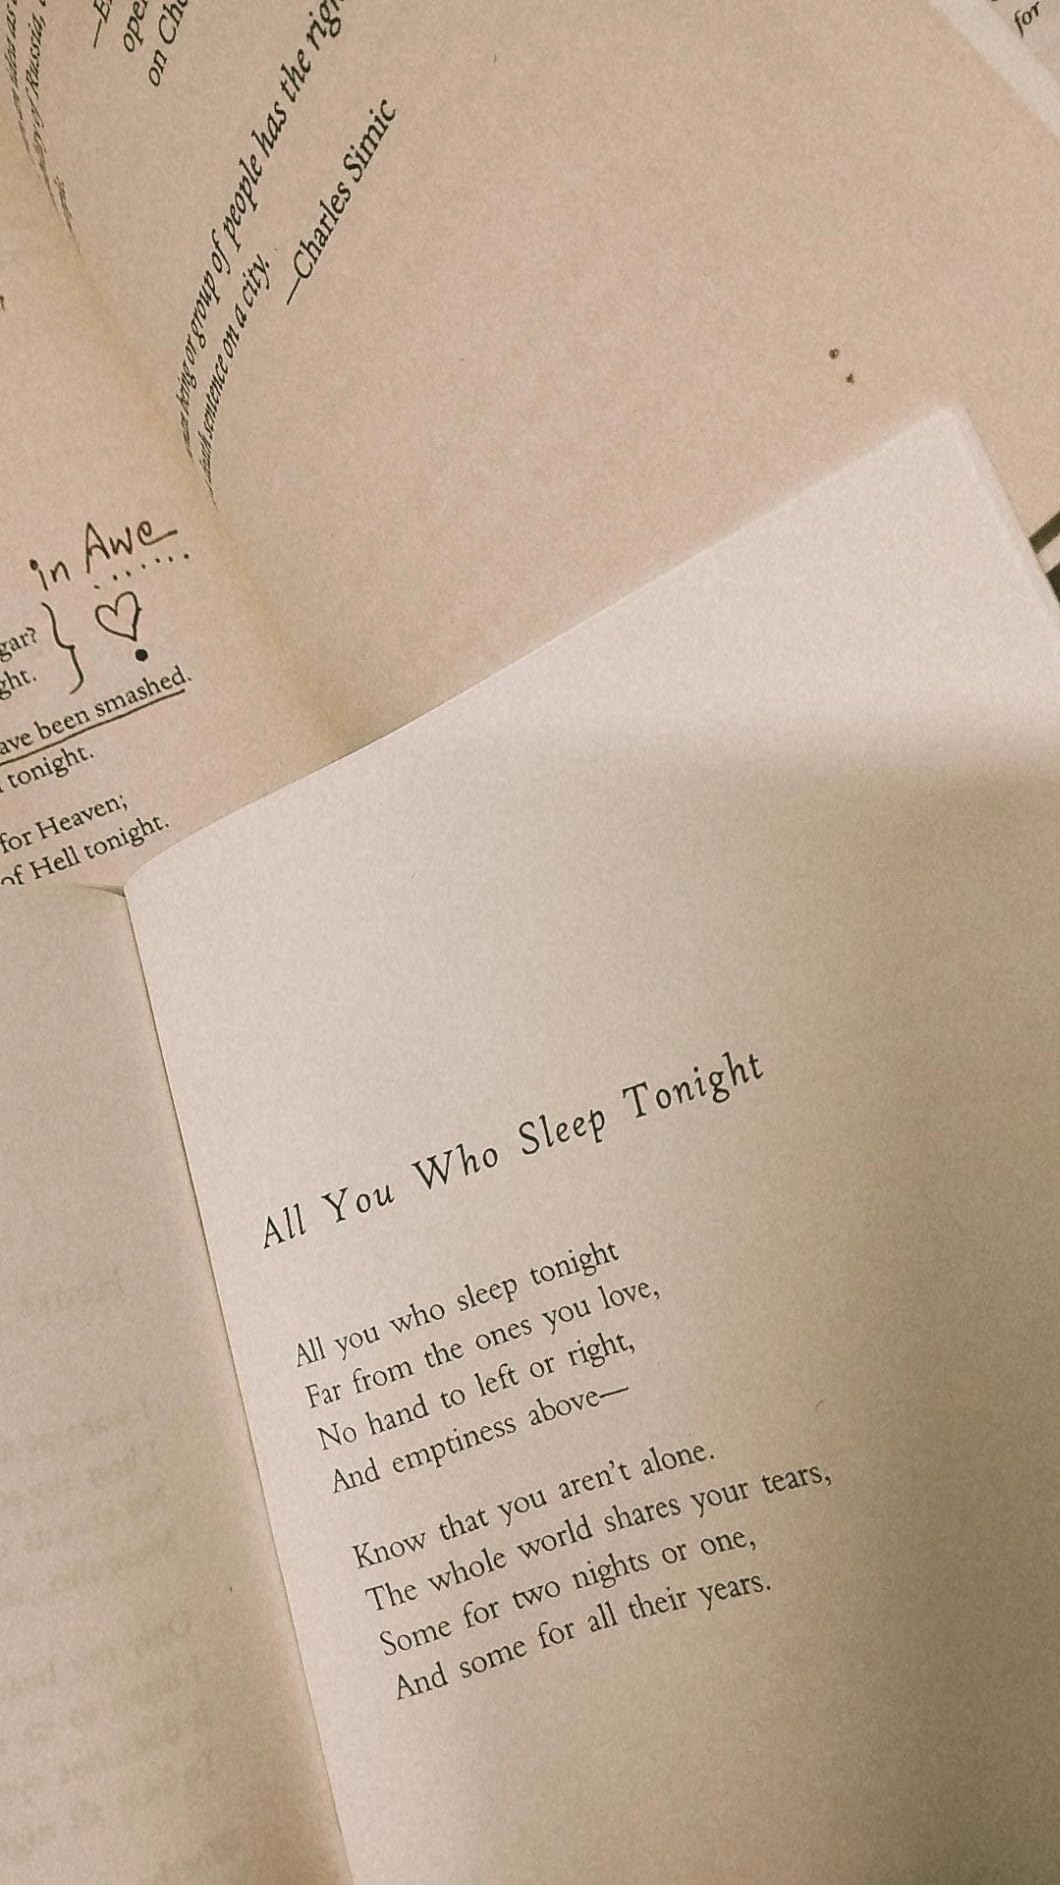 —E
ope
on Che
being or group of people has the righ
death sentence on a city.
—Charles Simic
for
of Russia,
in Awe
gar?
ght.
ave been smashed.
tonight.
for Heaven;
of Hell tonight.
All You Who Sleep Tonight
All you who sleep tonight
Far from the ones you love,
No hand to left or right,
And emptiness above—
Know that you aren't alone.
The whole world shares your tears,
Some for two nights or one,
And some for all their years.